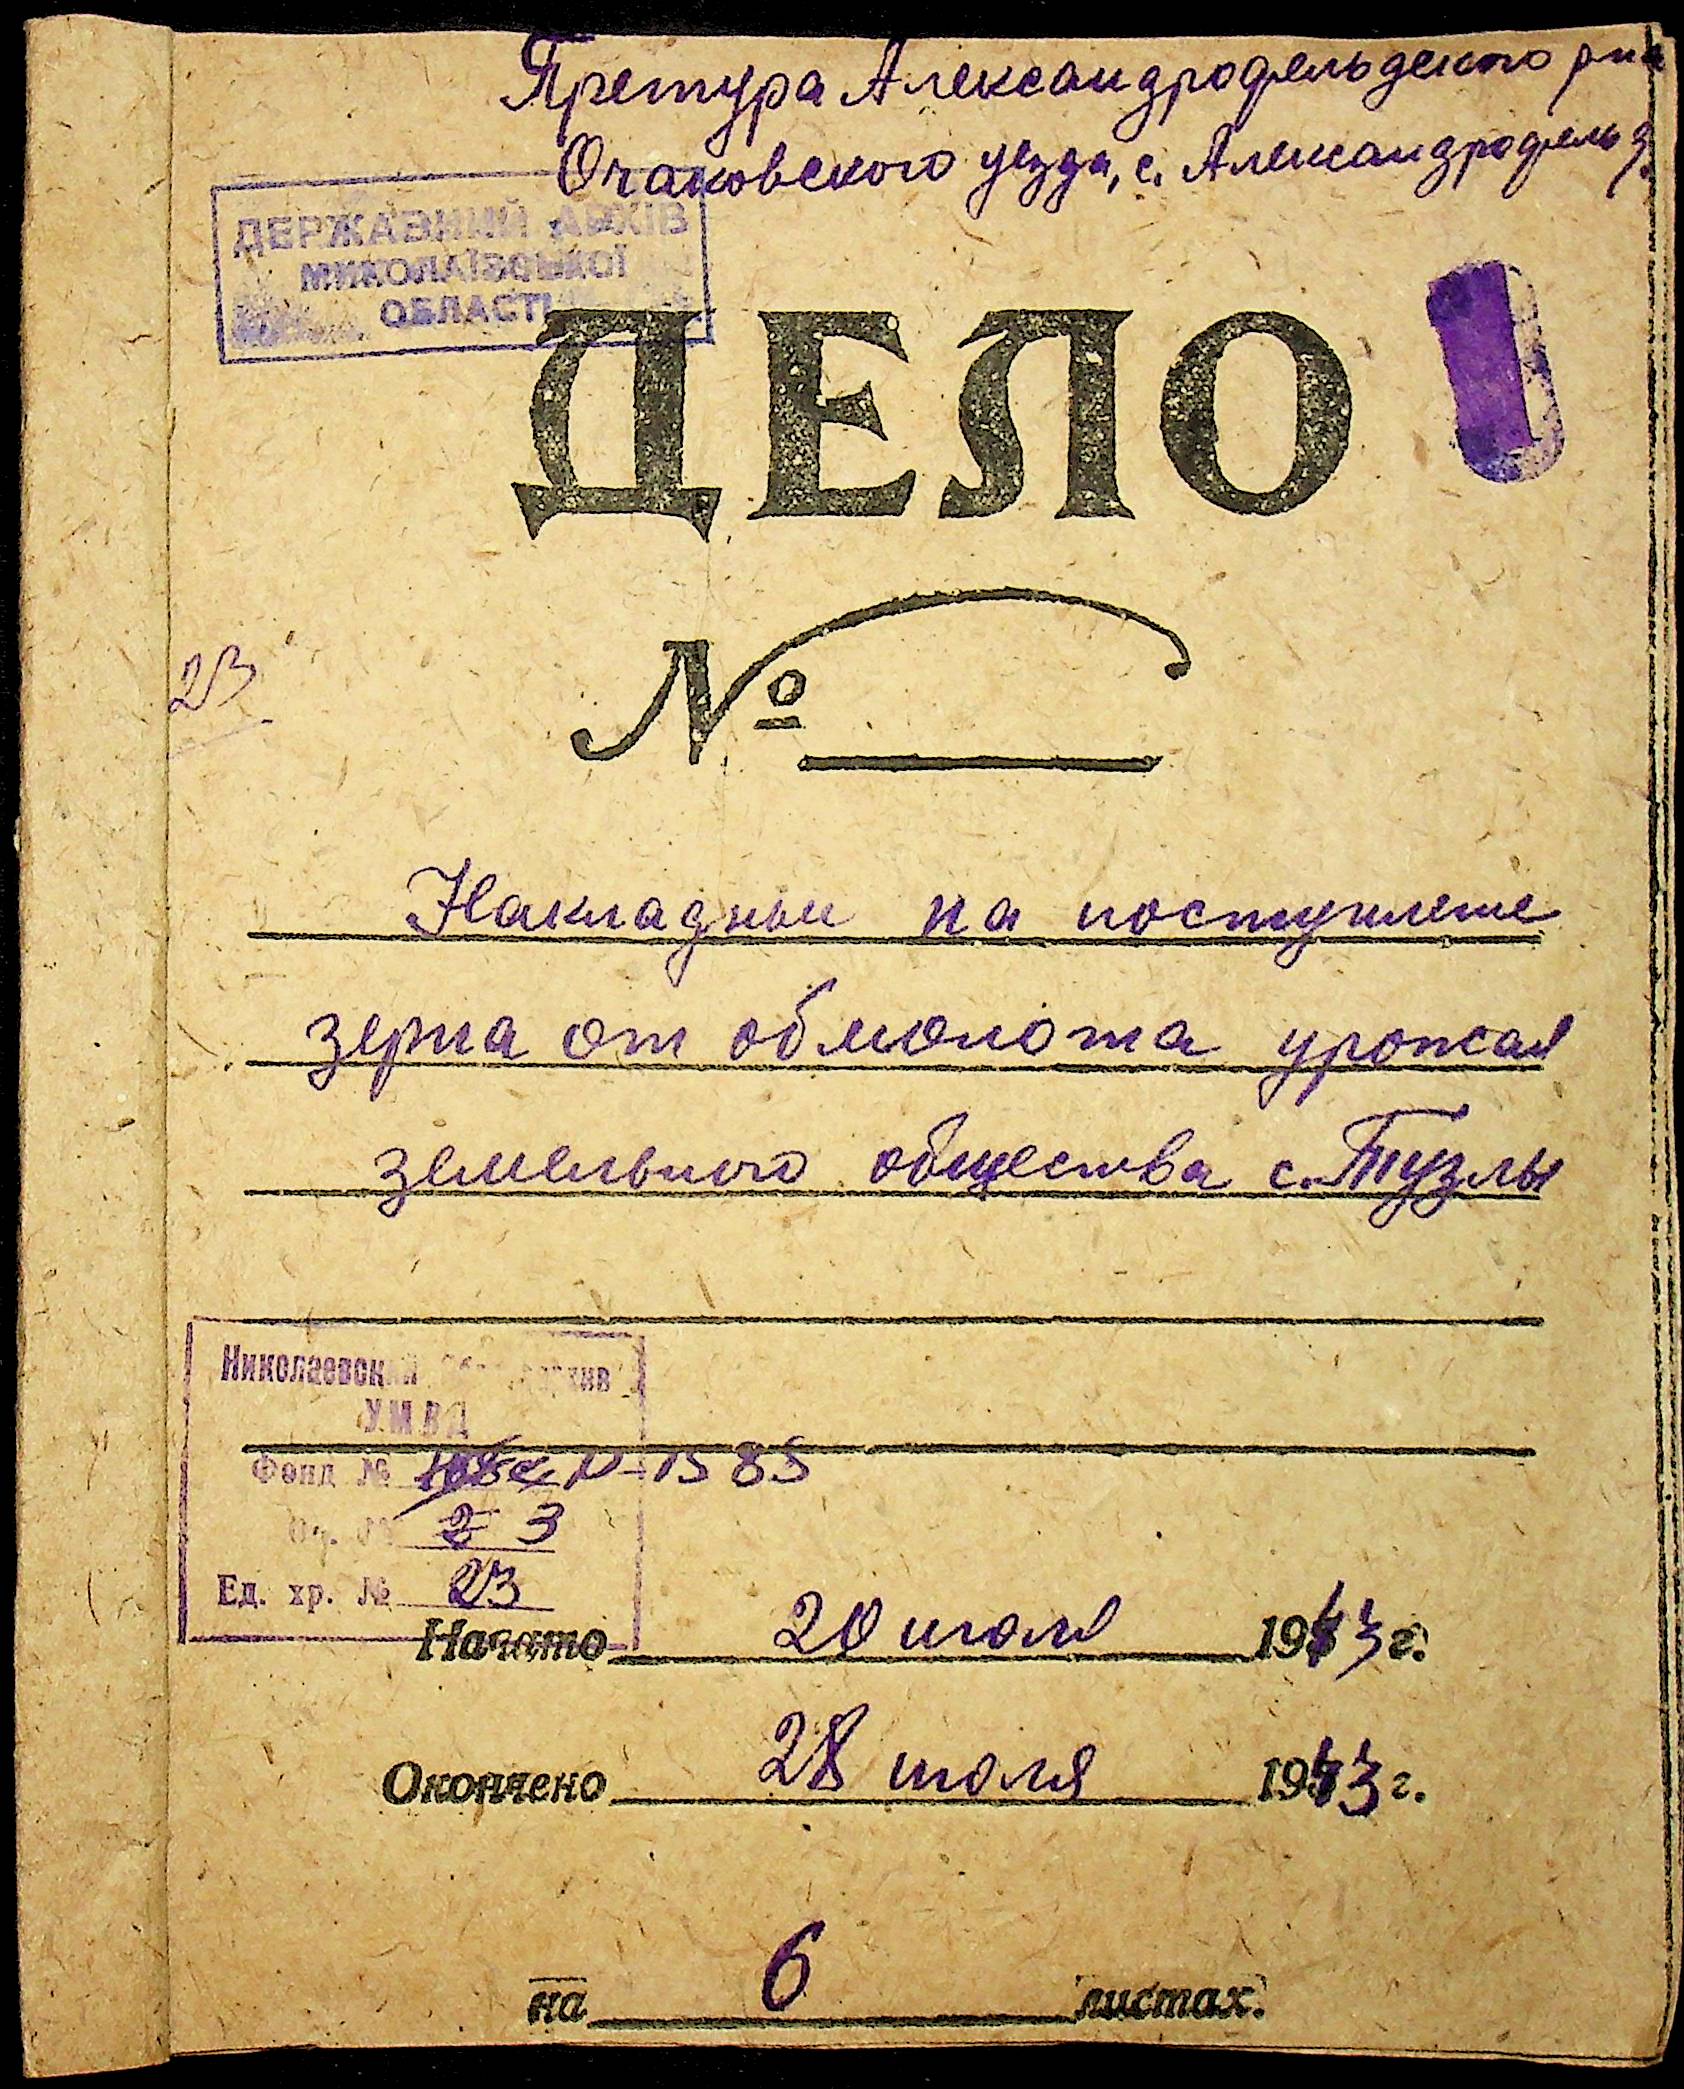 Претура Александрофельдского р-на
Очаковского уезда, с. Александрофельд
ДЕРЖАВНИЙ АРХІВ
МИКОЛАЇВСЬКОЇ
ОБЛАСТІ
ДЕЛО
№
23
Накладные на поступление
зерна от обмолота урожая
земельного общества с. Тузлы
Николаевский Обл. архив
УМВД
Фонд № Р-1585
Оп. № 2 3
Ед. хр. № 23
Начато 20 июля 1943 г.
Окончено 28 июля 1943 г.
на 6 листах.